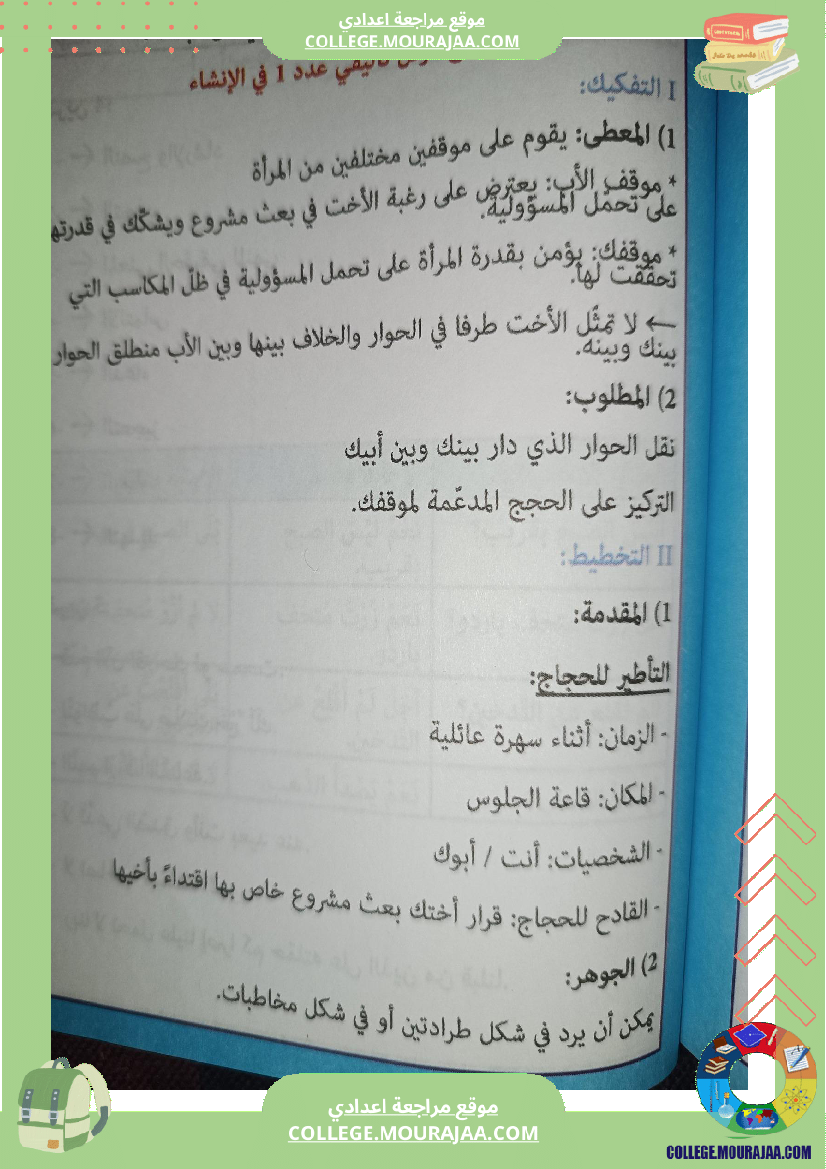 موقع مراجعة اعدادي
COLLEGE.MOURAJAA.COM
عدد 1 في الإنشاء
I التفكيك:
1) المعطى: يقوم على موقفين مختلفين من المرأة
* موقف الأب: يعترض على رغبة الأخت في بعث مشروع ويشكّك في قدرتها
على تحمّل المسؤولية.
* موقفك: يؤمن بقدرة المرأة على تحمل المسؤولية في ظلّ المكاسب التي
تحقّقت لها.
← لا تمثّل الأخت طرفا في الحوار والخلاف بينها وبين الأب منطلق الحوار
بينك وبينه.
2) المطلوب:
نقل الحوار الذي دار بينك وبين أبيك
التركيز على الحجج المدعّمة لموقفك.
II التخطيط:
1) المقدمة:
التأطير للحجاج:
- الزمان: أثناء سهرة عائلية
- المكان: قاعة الجلوس
- الشخصيات: أنت / أبوك
- القادح للحجاج: قرار أختك بعث مشروع خاص بها اقتداءً بأخيها
2) الجوهر:
يمكن أن يرد في شكل طرادتين أو في شكل مخاطبات.
موقع مراجعة اعدادي
COLLEGE.MOURAJAA.COM
COLLEGE.MOURAJAA.COM